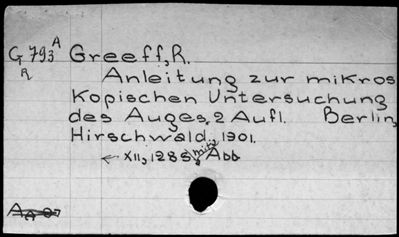 G 793 A Greeff, R.
R
Anleitung zur mikros
kopischen Untersuchung
des Auges. 2 Aufl. Berlin,
Hirschwald. 1901.
← XII, 128 S. mit Abb